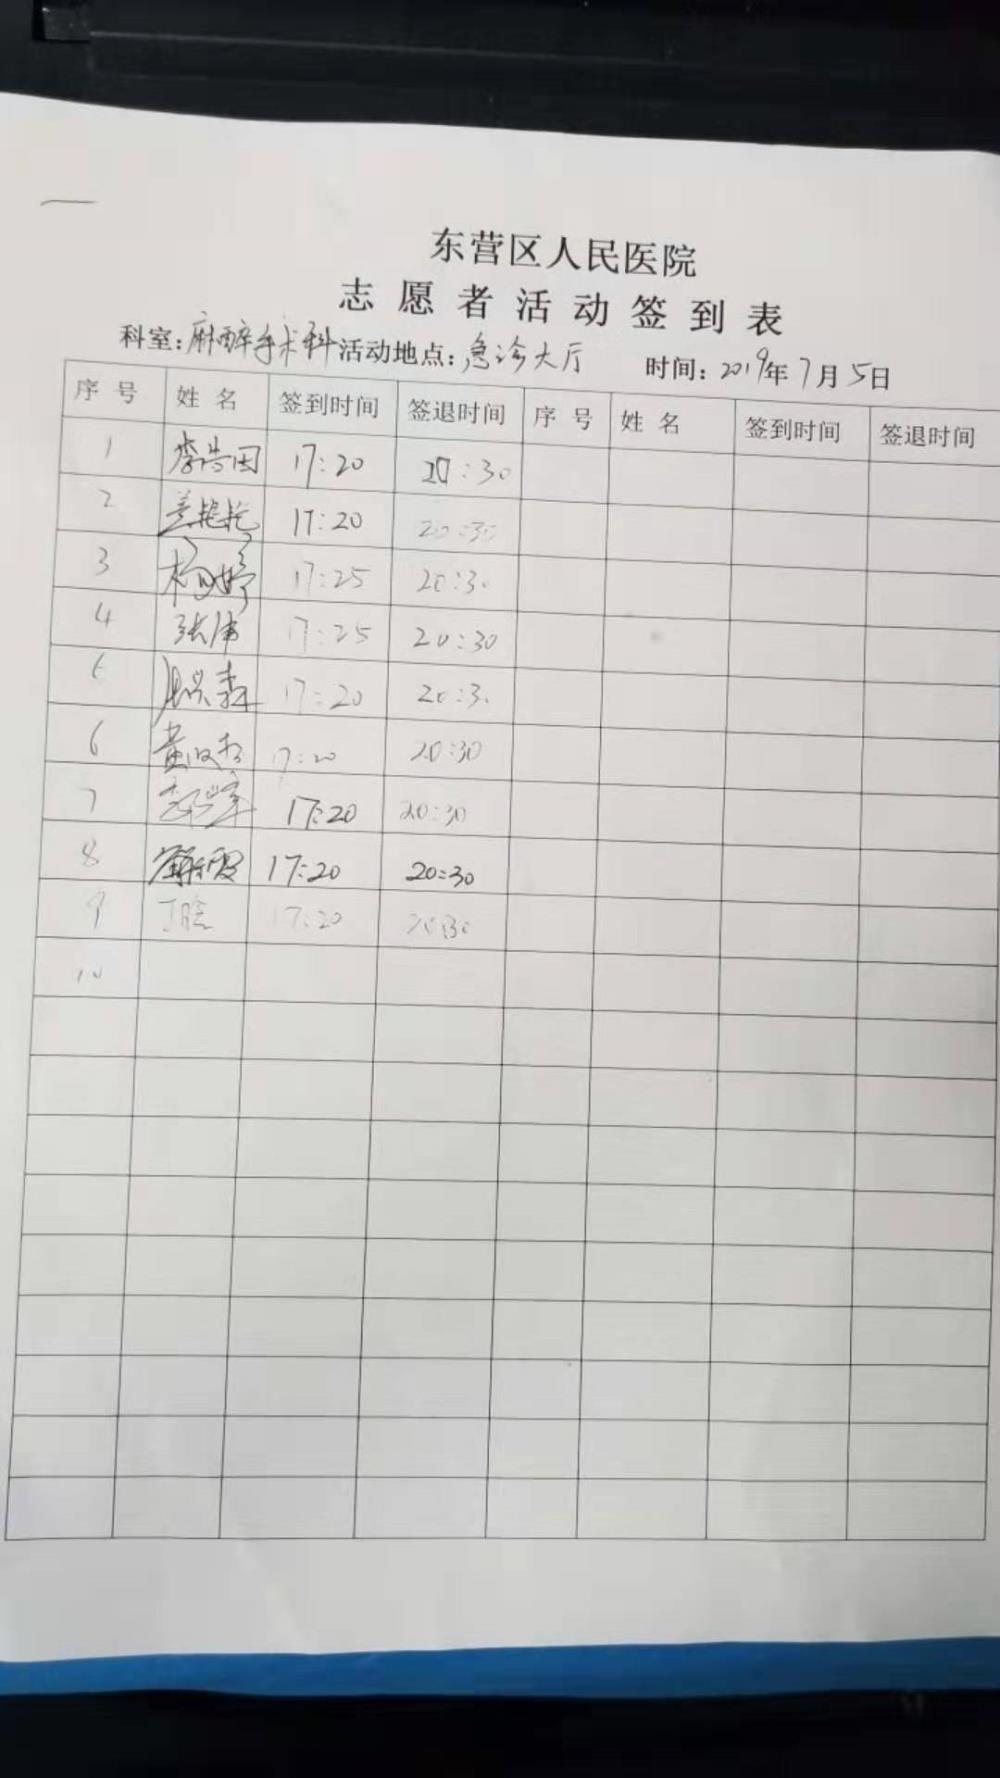 东营区人民医院
志愿者活动签到表
科室:麻醉手术科活动地点:急诊大厅 时间:2019年7月5日
序号 姓名 签到时间 签退时间 序号 姓名 签到时间 签退时间
1 李浩田 17:20 20:30
2 艳艳 17:20 20:30
3 杨婷 17:25 20:30
4 张伟 17:25 20:30
5 森 17:20 20:30
6 黄 17:20 20:30
7 17:20 20:30
8 霞 17:20 20:30
9 丁晗 17:20 20:30
10